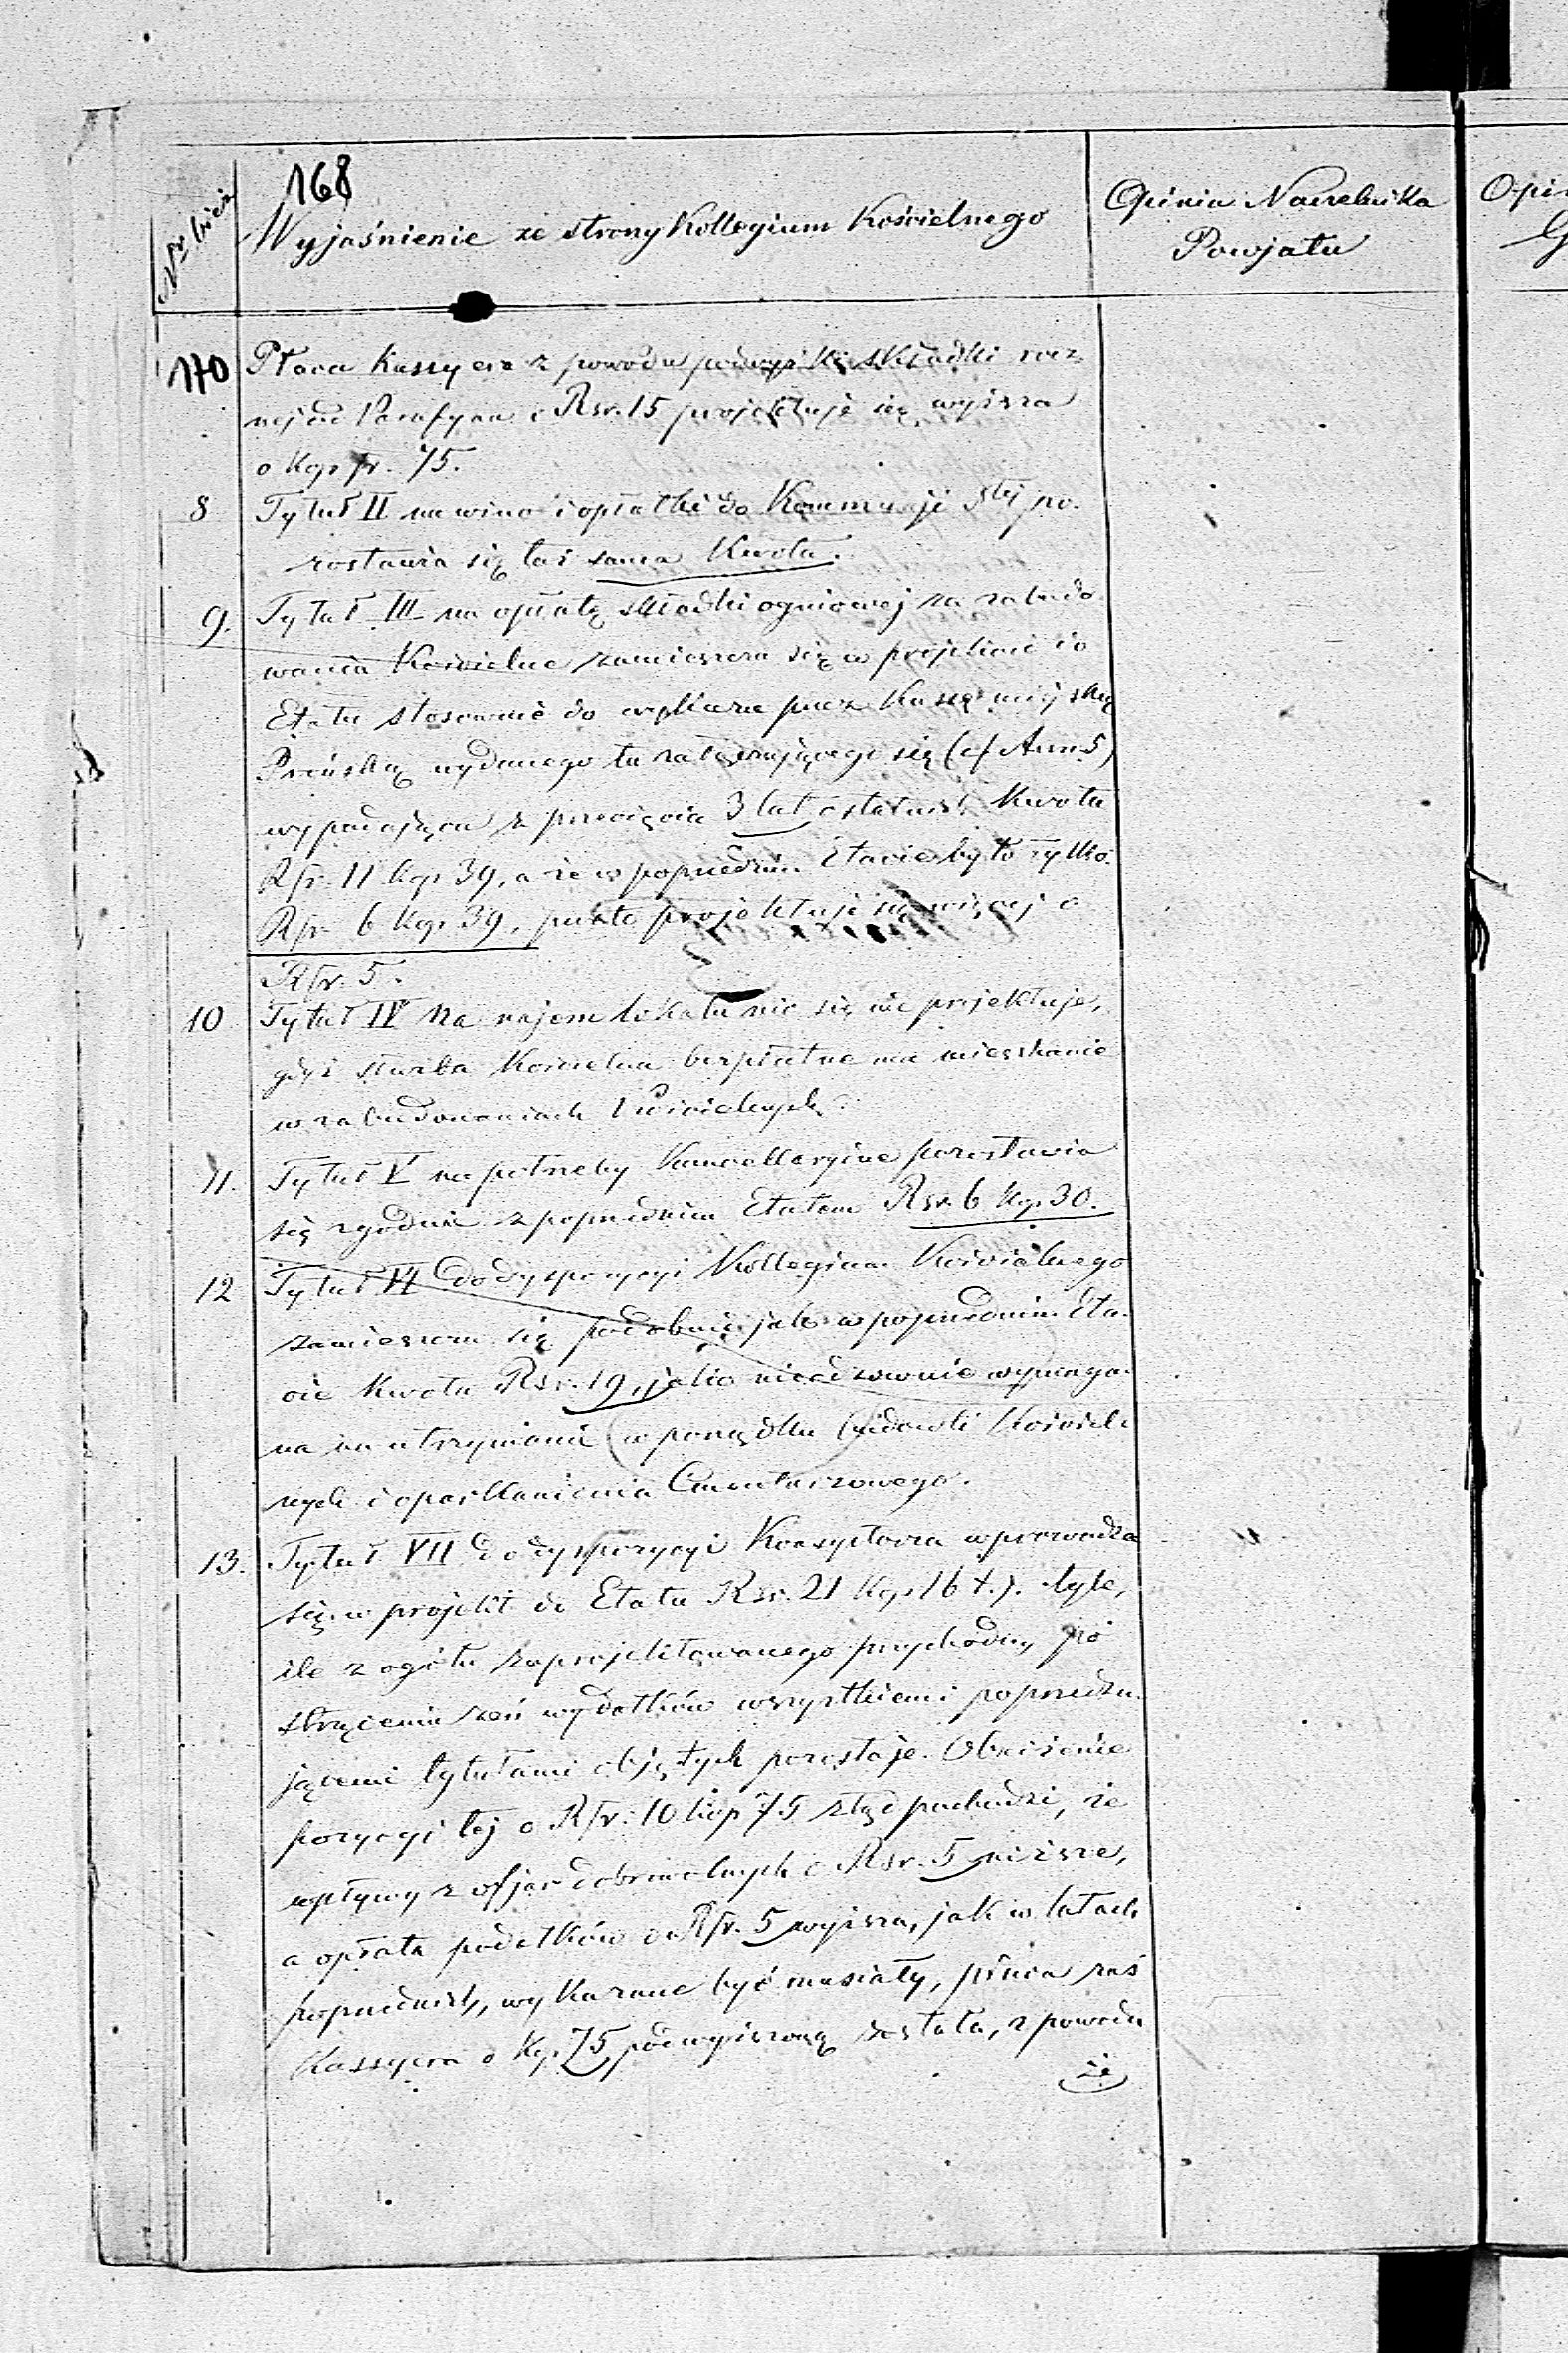 168
Nr bież
Wyjaśnienie ze strony Kollegium Kościelnego
Opinia Naczelnika
Powjatu
Opi
G
170
Płaca Kassyera z powodu podwyżki składki rocz
nej od Parafyan o Rsr. 15 projektuje się wyższa
o Kop sr. 75.
8 Tytuł II na wino i opłatki do Kommunji Stéj po-
zostawia się taż sama Kwota.
9. Tytuł III na opłatę składki ogniowej za zabudo
wania Kościelne zamieszcza się w projekcie do
Etatu stosownie do wykazu przez Kassę miejską
wydanego tu załączającego się (cf Ann 5)
wypadająca z przecięcia 3 lat ostatnich Kwota
Rsr. 11 Kop 39, a że w poprzednim Etacie było tylko
Rsr. 6 Kop 39, przeto projektuje się więcej o
Rsr. 5.
10 Tytuł IV Na najem lokalu nic się nie projektuje,
gdyż służba Kościelna bezpłatne ma mieszkanie
w zabudowaniach Kościelnych.
11. Tytuł V na potrzeby Kancellaryjne pozostawia
się zgodnie z poprzednim Etatem Rsr. 6 Kop 30.
12 Tytuł VI do dyspozycyi Kollegium Kościelnego
zamieszcza się podobnie jak w poprzednim Eta-
cie Kwota Rsr. 19, jako nieodzownie wymaga-
na na utrzymanie w porządku budowli Kościel-
nych i oparkanienia Cmentarzowego.
13. Tytuł VII do dyspozycyi Konsystorza wprowadza
się w projekt do Etatu Rsr. 21 Kop 16 t. j. tyle,
ile z ogółu zaprojektowanego przychodu, po
strąceniu zeń wydatków wszystkiemi poprzedza-
jącemi tytułami objętych pozostaje. Obniżenie
pozycyi tej o Rsr. 10 Kop 75 ztąd pochodzi, że
wpływy z ofjar dobrowolnych o Rsr. 5 niższe,
a opłata podatków o Rsr. 5 wyższa, jak w latach
poprzednich, wykazane być musiały, płaca zaś
Kassyera o Kop. 75 podwyższoną została, z powodu
że